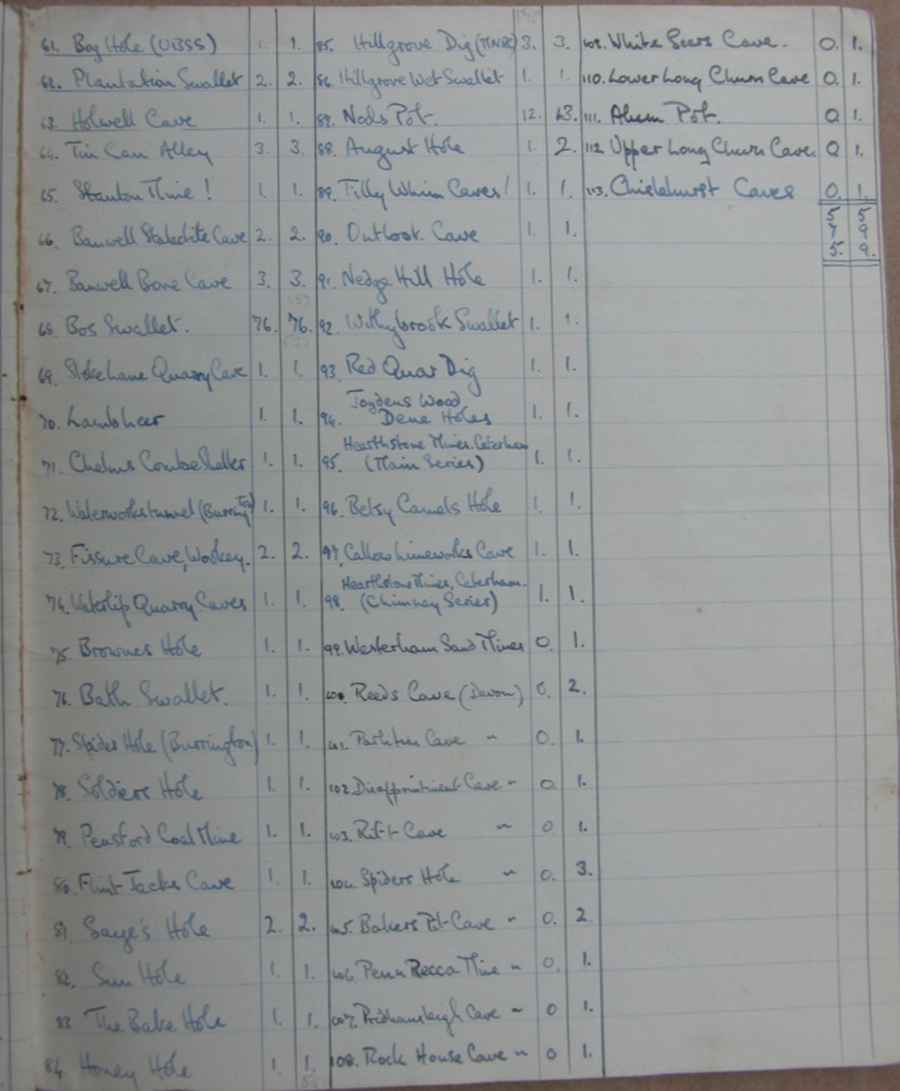 61. Bog Hole (UBSS) 1. 1.
62. Plantation Swallet 2. 2.
63. Holwell Cave 1. 1.
64. Tin Can Alley 3. 3.
65. Stanton Mine! 1. 1.
66. Banwell Stalactite Cave 2. 2.
67. Banwell Bone Cave 3. 3.
68. Bos Swallet. 76. 76.
69. Stoke Lane Quarry Cave 1. 1.
70. Lamb Leer 1. 1.
71. Chelms Combe Shelter 1. 1.
72. Waterworks tunnel (Burrington) 1. 1.
73. Fissure Cave, Wookey. 2. 2.
74. Waterlip Quarry Caves 1. 1.
75. Brownes Hole 1. 1.
76. Bath Swallet. 1. 1.
77. Spider Hole (Burrington) 1. 1.
78. Soldiers Hole 1. 1.
79. Pensford Coal Mine 1. 1.
80. Flint Jacks Cave 1. 1.
81. Saye's Hole 2. 2.
82. Sun Hole 1. 1.
83 The Bake Hole 1. 1.
84. Honey Hole 1. 1.
85. Hillgrove Dig (MNRC) 3. 3.
86. Hillgrove Wet Swallet 1. 1.
87. Nods Pot. 12. 13.
88. August Hole 1. 2.
89. Tilly Whim Caves! 1. 1.
90. Outlook Cave 1. 1.
91. Nedge Hill Hole 1. 1.
92. Withybrook Swallet 1. 1.
93. Red Quar Dig 1. 1.
Joydens Wood
94. Dene Holes 1. 1.
Hearthstone Mines. Caterham
95. (Main Series) 1. 1.
96. Betsy Camels Hole 1. 1.
97. Callow Limeworks Cave 1. 1.
Hearthstone Mines, Caterham.
98. (Chimney Series) 1. 1.
99. Westerham Sand Mines 0. 1.
100. Reeds Cave (Devon) 0. 2.
101. Cave " 0. 1.
102. Disappointment Cave " 0. 1.
103. Rift Cave " 0 1.
104. Spiders Hole " 0. 3.
105. Bakers Pit Cave " 0. 2
106. Penn Recca Mine " 0. 1.
107. Pridhamsleigh Cave " 0 1.
108. Rock House Cave " 0 1.
109. White Scars Cave. 0. 1.
110. Lower Long Churn Cave 0. 1.
111. Alum Pot. 0 1.
112. Upper Long Churn Cave. 0 1.
113. Chislehurst Caves 0. 1.
5 5
7 9
5. 9.